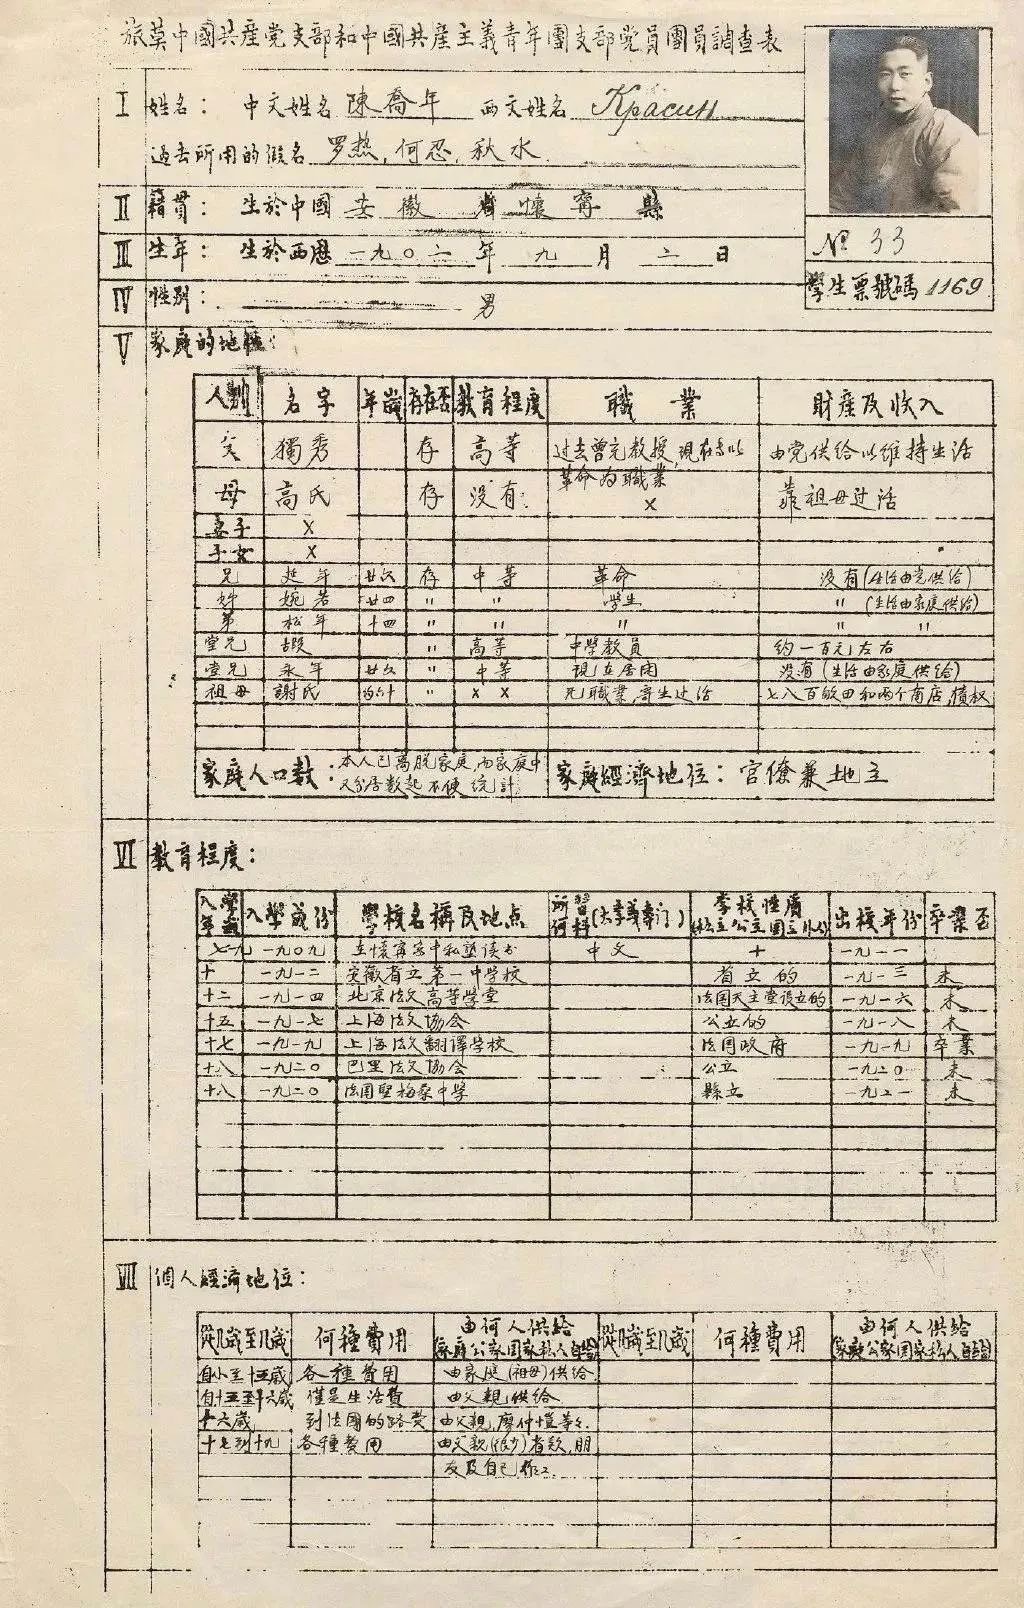 旅莫中國共産党支部和中國共産主義青年團支部党員團員調查表
I 姓名： 中文姓名 陳喬年 西文姓名 Красин
过去所用的假名 罗热，何忍，秋水
II 籍貫： 生於中國 安徽 省 懷寧 縣
III 生年： 生於西歷 一九〇二 年 九 月 二 日
IV 性别： 男
№ 33
學生票號碼 1169
V 家庭的地位：
人别 名字 年歲 存在否 教育程度 職業 財産及收入
父 獨秀 存 高等 过去曾充教授，現在专以革命为職業 由党供给以维持生活
母 高氏 存 没有 × 靠祖母过活
妻子 ×
子女 ×
兄 延年 廿六 存 中等 革命 没有（生活由党供给）
姊 婉若 廿四 〃 〃 学生 〃（生活由家庭供给）
弟 松年 十四 〃 〃 〃 〃 〃
堂兄 遐 〃 高等 中學教員 约一百元左右
堂兄 永年 廿六 〃 中等 現在居闲 没有（生活由家庭供给）
祖母 謝氏 〃 × × 无職業，寄生过活 七八百畝田和两个商店，債权
家庭人口數： 本人已离脱家庭，而家庭中又分居數起不便统計 家庭經濟地位： 官僚兼地主
VI 教育程度：
入學年歲 入學歲份 學校名稱及地点 所習何科（大學義專门） 學校性質（私立公立國立外人） 出校年份 卒業否
七-九 一九〇九 在懷寧家中私塾读书 中文 + 一九一一
十 一九一二 安徽省立第一中学校 省立的 一九一三 未
十二 一九一四 北京法文高等學堂 法国天主堂设立的 一九一六 未
十五 一九一七 上海法文協会 公立的 一九一八 未
十七 一九一九 上海法文翻譯学校 法国政府 一九一九 卒業
十八 一九二〇 巴里法文協会 公立 一九二〇 未
十八 一九二〇 法国聖梅桑中学 縣立 一九二一 未
VII 個人經濟地位：
從几歲至几歲 何種費用 由何人供給（家庭公家国家私人自给） 從几歲至几歲 何種費用 由何人供給（家庭公家国家私人自给）
自小至十五歲 各種費用 由家庭（祖母）供给
自十五至十六歲 僅是生活費 由父親供给
十六歲 到法國的路費 由父親，廖仲愷等
十七到十九 各種費用 由父親（很少）者欵，朋
友及自己作工